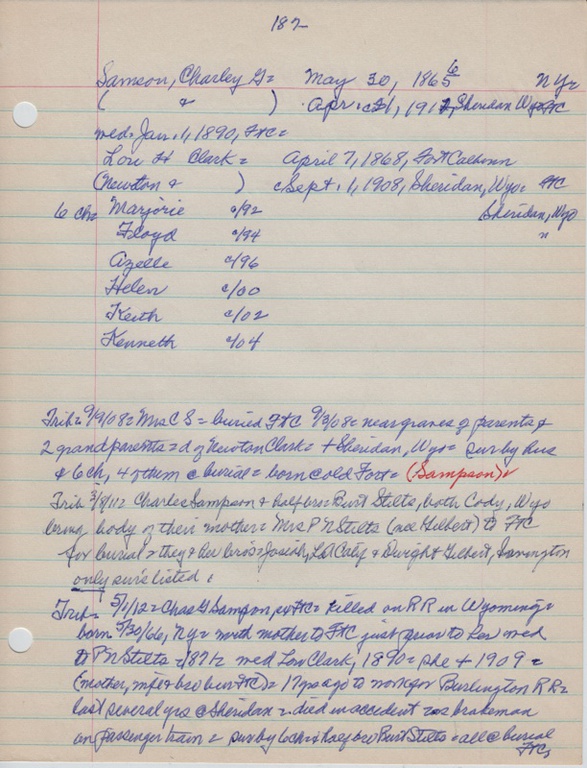 182
Samson, Charley G= May 30, 1865 6 NY=
( & ) Apr. c21, 1912, Sheridan Wyo= FtC
med. Jan. 1, 1890, FtC=
Lou H Clark= April 7, 1868, Fort Calhoun
(Newton & ) cSept. 1, 1908, Sheridan, Wyo= FtC
6 ch= Marjorie c/92 Sheridan, Wyo
Floyd c/94 "
Azelle c/96
Helen c/00
Keith c/02
Kenneth c/04
Trib= 9/9/08= Mrs C S= buried FtC 9/3/08= near graves of parents &
2 grandparents= d of Newton Clark= + Sheridan, Wyo= sur by hus
& 6 ch, 4 of them c burial= born c old Fort= (Sampson)
Trib 3/8/11= Charles Sampson & half bro= Burt Stilts, both Cody, Wyo
bring body of their mother= Mrs P N Stilts (nee Gilbert) to FtC
for burial= they & her bros= Josiah, & Dwight Gilbert,
only surs listed.
Trib= 5/1/12= Chas G Sampson, FtC= killed on RR in Wyoming=
born 5/30/66, NY= with mother to FtC just prior to her med
to P N Stilts= 1872= med Lou Clark, 1890= she + 1909=
(mother, & bro bur FtC)= 17 yrs ago to work for Burlington RR=
last several yrs c Sheridan= died in accident as brakeman
on passenger train= sur by 6 ch & half bro Burt Stilts= all c burial
FtC